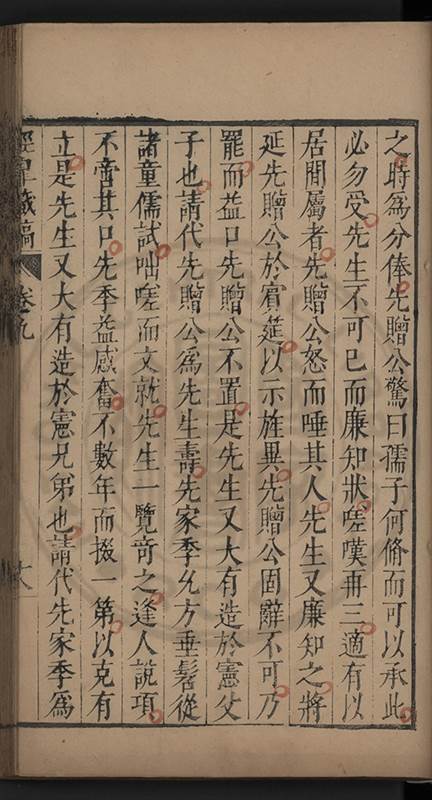 之時爲分俸先贈公驚曰孺子何脩而可以承此
必勿受先生不可已而廉知狀嗟嘆再三適有以
居間屬者先贈公怒而唾其人先生又廉知之將
延先贈公於賓筵以示旌異先贈公固辭不可乃
罷而益口先贈公不置是先生又大有造於憲父
子也請代先贈公爲先生壽先家季允方垂髫從
諸童儒試咄嗟而文就先生一覽竒之逢人說項
不啻其口先季益感奮不數年而掇一第以克有
立是先生又大有造於憲兄弟也請代先家季爲
藏稿
卷九